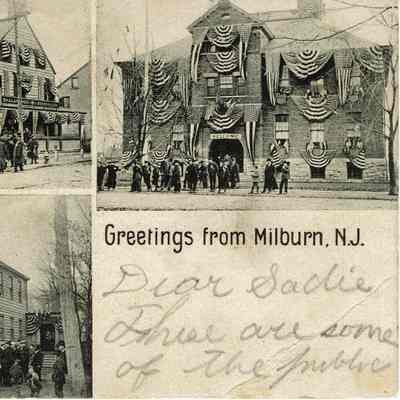 WELCOME
Greetings from Milburn, N.J.
Dear Sadie
These are some
of the public